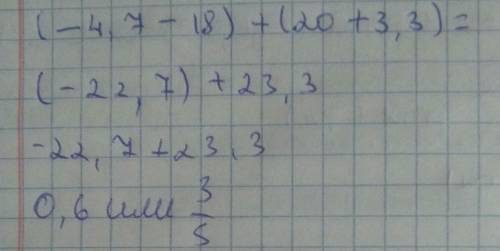 (-4,7-18)+(20+3,3)=
(-22,7)+23,3
-22,7+23,3
0,6 или 3/5